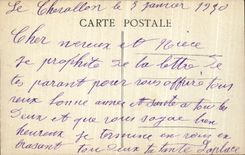 Le Chevallon le 3 janvier 1920
CARTE POSTALE
Cher neveux et Nièce
je prophite de la lettre de
tes parant pour vous offrire tous
veux bonne année et santé a tous les
deux et que vous soyae bien
heureux je termine en vous en
brassent tous deux ta tante Laplace